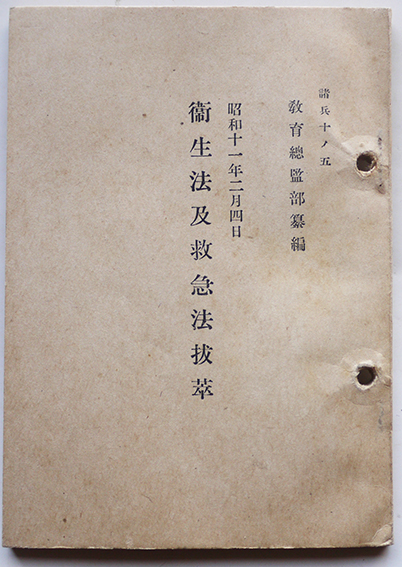 諸兵十ノ五
敎育總監部纂編
昭和十一年二月四日
衞生法及救急法拔萃